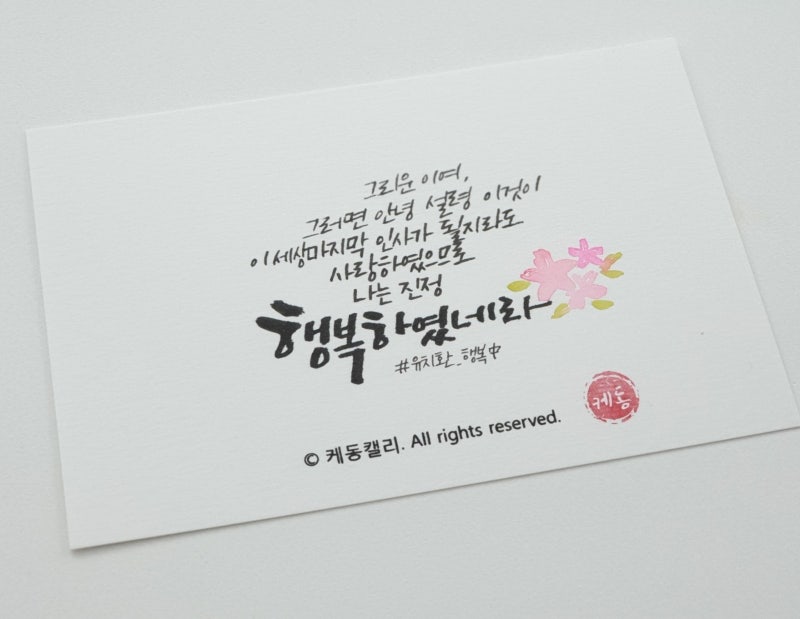 그리운 이여,
그러면 안녕 설령 이것이
이 세상마지막 인사가 될지라도
사랑하였으므로
나는 진정
행복하였네라
#유치환_행복中
케동
© 케동캘리. All rights reserved.